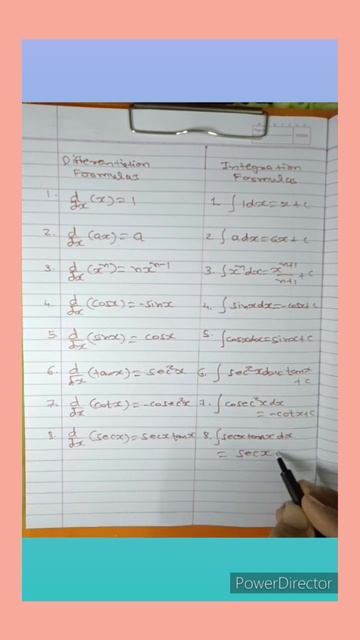 Differentiation
Formulas
Integration
Formulas
1. d/dx (x) = 1
1. ∫ 1dx = x + c
2. d/dx (ax) = a
2. ∫ adx = ax + c
3. d/dx (xⁿ) = nxⁿ⁻¹
3. ∫ xⁿdx = xⁿ⁺¹/n+1 + c
4. d/dx (cosx) = -sinx
4. ∫ sinxdx = -cosx + c
5. d/dx (sinx) = cosx
5. ∫ cosxdx = sinx + c
6. d/dx (tanx) = sec²x
6. ∫ sec²xdx = tanx
+ c
7. d/dx (cotx) = -cosec²x
7. ∫ cosec²x dx
= -cotx + c
8. d/dx (secx) = secx tanx
8. ∫ secx tanx dx
= secx
PowerDirector